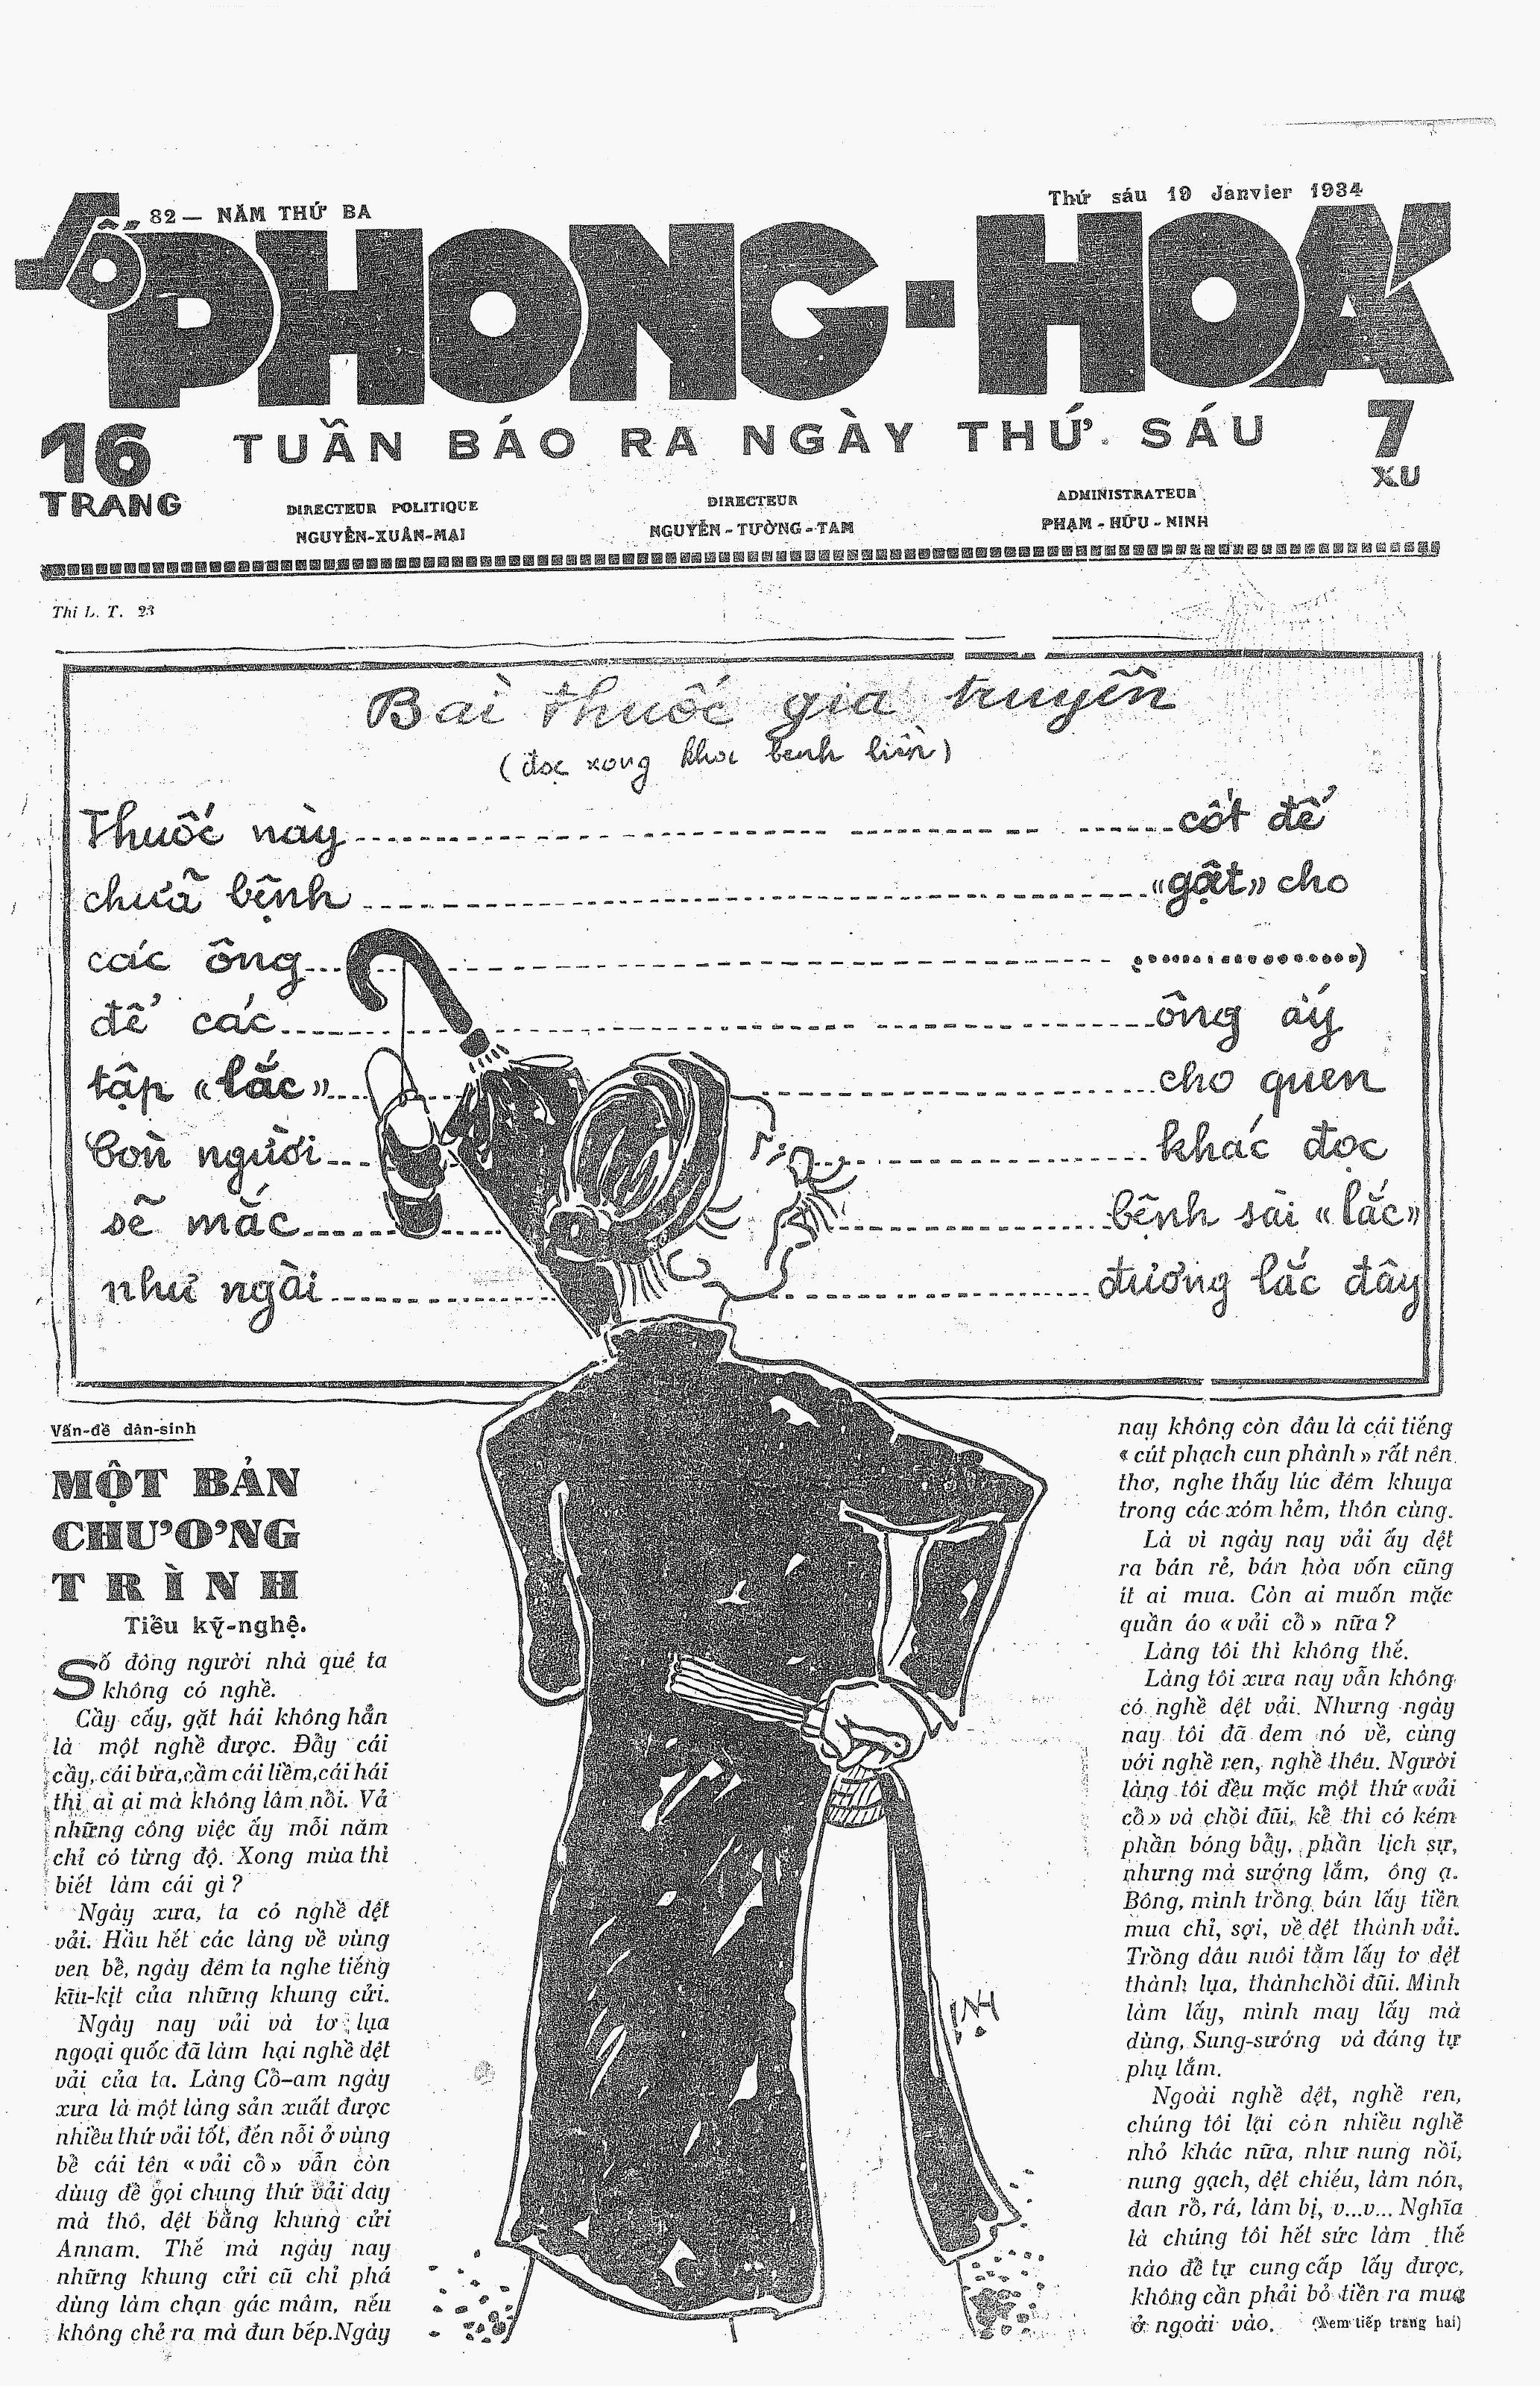 Số 82 — NĂM THỨ BA
Thứ sáu 19 Janvier 1934
PHONG-HOÁ
16
TRANG
TUẦN BÁO RA NGÀY THỨ SÁU
7
XU
DIRECTEUR POLITIQUE
NGUYỄN-XUÂN-MAI
DIRECTEUR
NGUYỄN-TƯỜNG-TAM
ADMINISTRATEUR
PHẠM-HỮU-NINH
Thi L. T. 23
Bài thuốc gia truyền
(đọc xong khỏi bệnh liền)
Thuốc này cốt để
chữa bệnh «gật» cho
các ông (.................)
để các ông ấy
tập «lắc» cho quen
Còn người khác đọc
sẽ mắc bệnh sài «lắc»
như ngài đương lắc đây
Vấn-đề dân-sinh
MỘT BẢN
CHƯƠNG
TRÌNH
Tiểu kỹ-nghệ.
Số đông người nhà quê ta
không có nghề.
Cầy cấy, gặt hái không hẳn
là một nghề được. Đẩy cái
cầy, cái bừa,cầm cái liềm,cái hái
thì ai ai mà không làm nổi. Vả
những công việc ấy mỗi năm
chỉ có từng độ. Xong mùa thì
biết làm cái gì ?
Ngày xưa, ta có nghề dệt
vải. Hầu hết các làng về vùng
ven bề, ngày đêm ta nghe tiếng
kĩu-kịt của những khung cửi.
Ngày nay vải và tơ lụa
ngoại quốc đã làm hại nghề dệt
vải của ta. Làng Cổ-am ngày
xưa là một làng sản xuất được
nhiều thứ vải tốt, đến nỗi ở vùng
bề cái tên « vải cổ » vẫn còn
dùng để gọi chung thứ vải dày
mà thô, dệt bằng khung cửi
Annam. Thế mà ngày nay
những khung cửi cũ chỉ phá
dùng làm chạn gác mâm, nếu
không chẻ ra mà đun bếp.Ngày
nay không còn đâu là cái tiếng
« cút phạch cun phành » rất nên
thơ, nghe thấy lúc đêm khuya
trong các xóm hẻm, thôn cùng.
Là vì ngày nay vải ấy dệt
ra bán rẻ, bán hòa vốn cũng
ít ai mua. Còn ai muốn mặc
quần áo « vải cổ » nữa ?
Làng tôi thì không thế.
Làng tôi xưa nay vẫn không
có nghề dệt vải. Nhưng ngày
nay tôi đã đem nó về, cùng
với nghề ren, nghề thêu. Người
làng tôi đều mặc một thứ «vải
cổ» và chồi đũi, kể thì có kém
phần bóng bẩy, phần lịch sự,
nhưng mà sướng lắm, ông ạ.
Bông, mình trồng, bán lấy tiền
mua chỉ, sợi, về dệt thành vải.
Trồng dâu nuôi tằm lấy tơ dệt
thành lụa, thànhchồi đũi. Mình
làm lấy, mình may lấy mà
dùng, Sung-sướng và đáng tự
phụ lắm.
Ngoài nghề dệt, nghề ren,
chúng tôi lại còn nhiều nghề
nhỏ khác nữa, như nung nồi,
nung gạch, dệt chiếu, làm nón,
đan rổ, rá, làm bị, v...v... Nghĩa
là chúng tôi hết sức làm thế
nào để tự cung cấp lấy được,
không cần phải bỏ tiền ra mua
ở ngoài vào. (Xem tiếp trang hai)